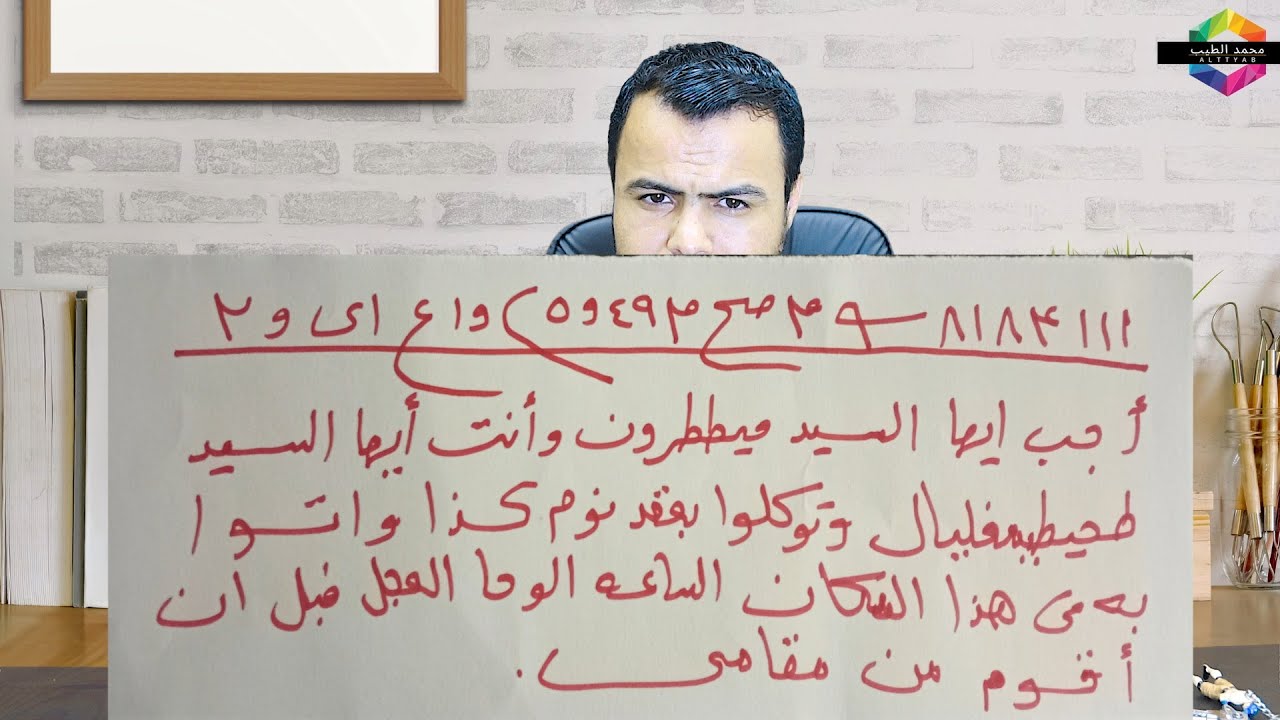 محمد الطيب
ALTTYAB
١١١ ٨١٨٣ ٩ ٣ صح ٤٩٣ و٥ واع اى و٢
أجب ايها السيد ميططرون وأنت أيها السيد
وتوكلوا بعقد نوم كذا واتوا
به من هذا المكان الساعه الوحا العجل قبل ان
أقوم من مقامى.